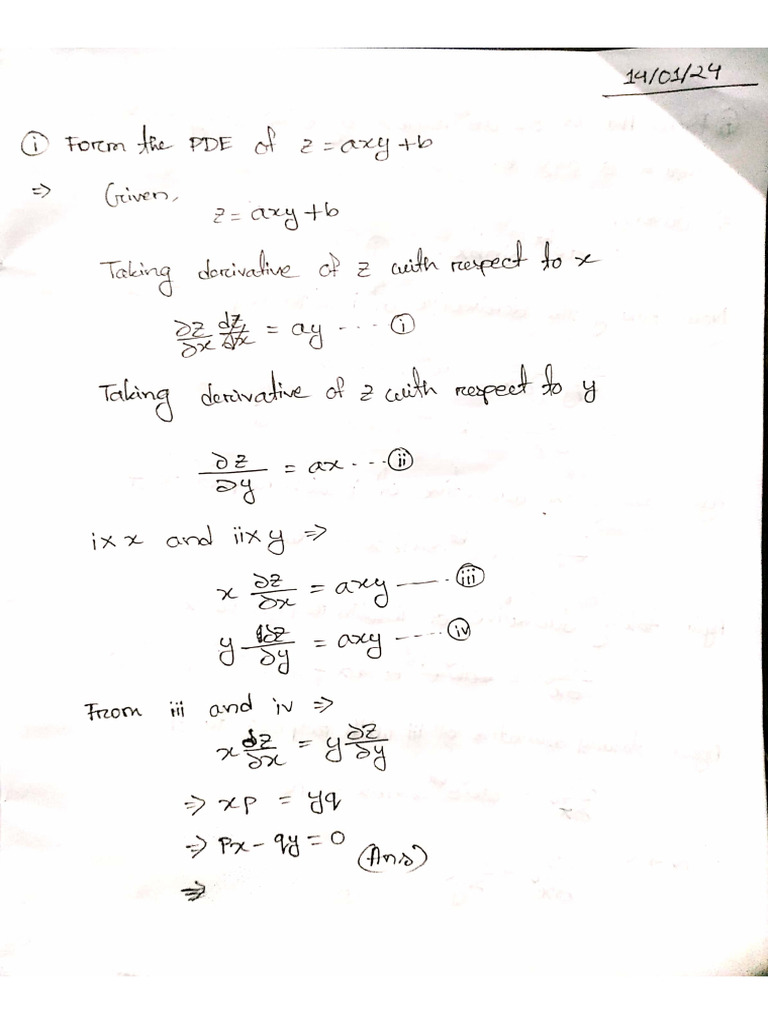 14/01/24
① Form the PDE of z = axy + b
⇒ Given,
z = axy + b
Taking derivative of z with respect to x
∂z/∂x dz/dx = ay --- ⓘ
Taking derivative of z with respect to y
∂z/∂y = ax --- ⓘⓘ
i × x and ii × y ⇒
x ∂z/∂x = axy --- ⓘⓘⓘ
y ∂z/∂y = axy --- ⓘⓥ
From iii and iv ⇒
x ∂z/∂x = y ∂z/∂y
⇒ xp = yq
⇒ px - qy = 0 (Ans)
⇒